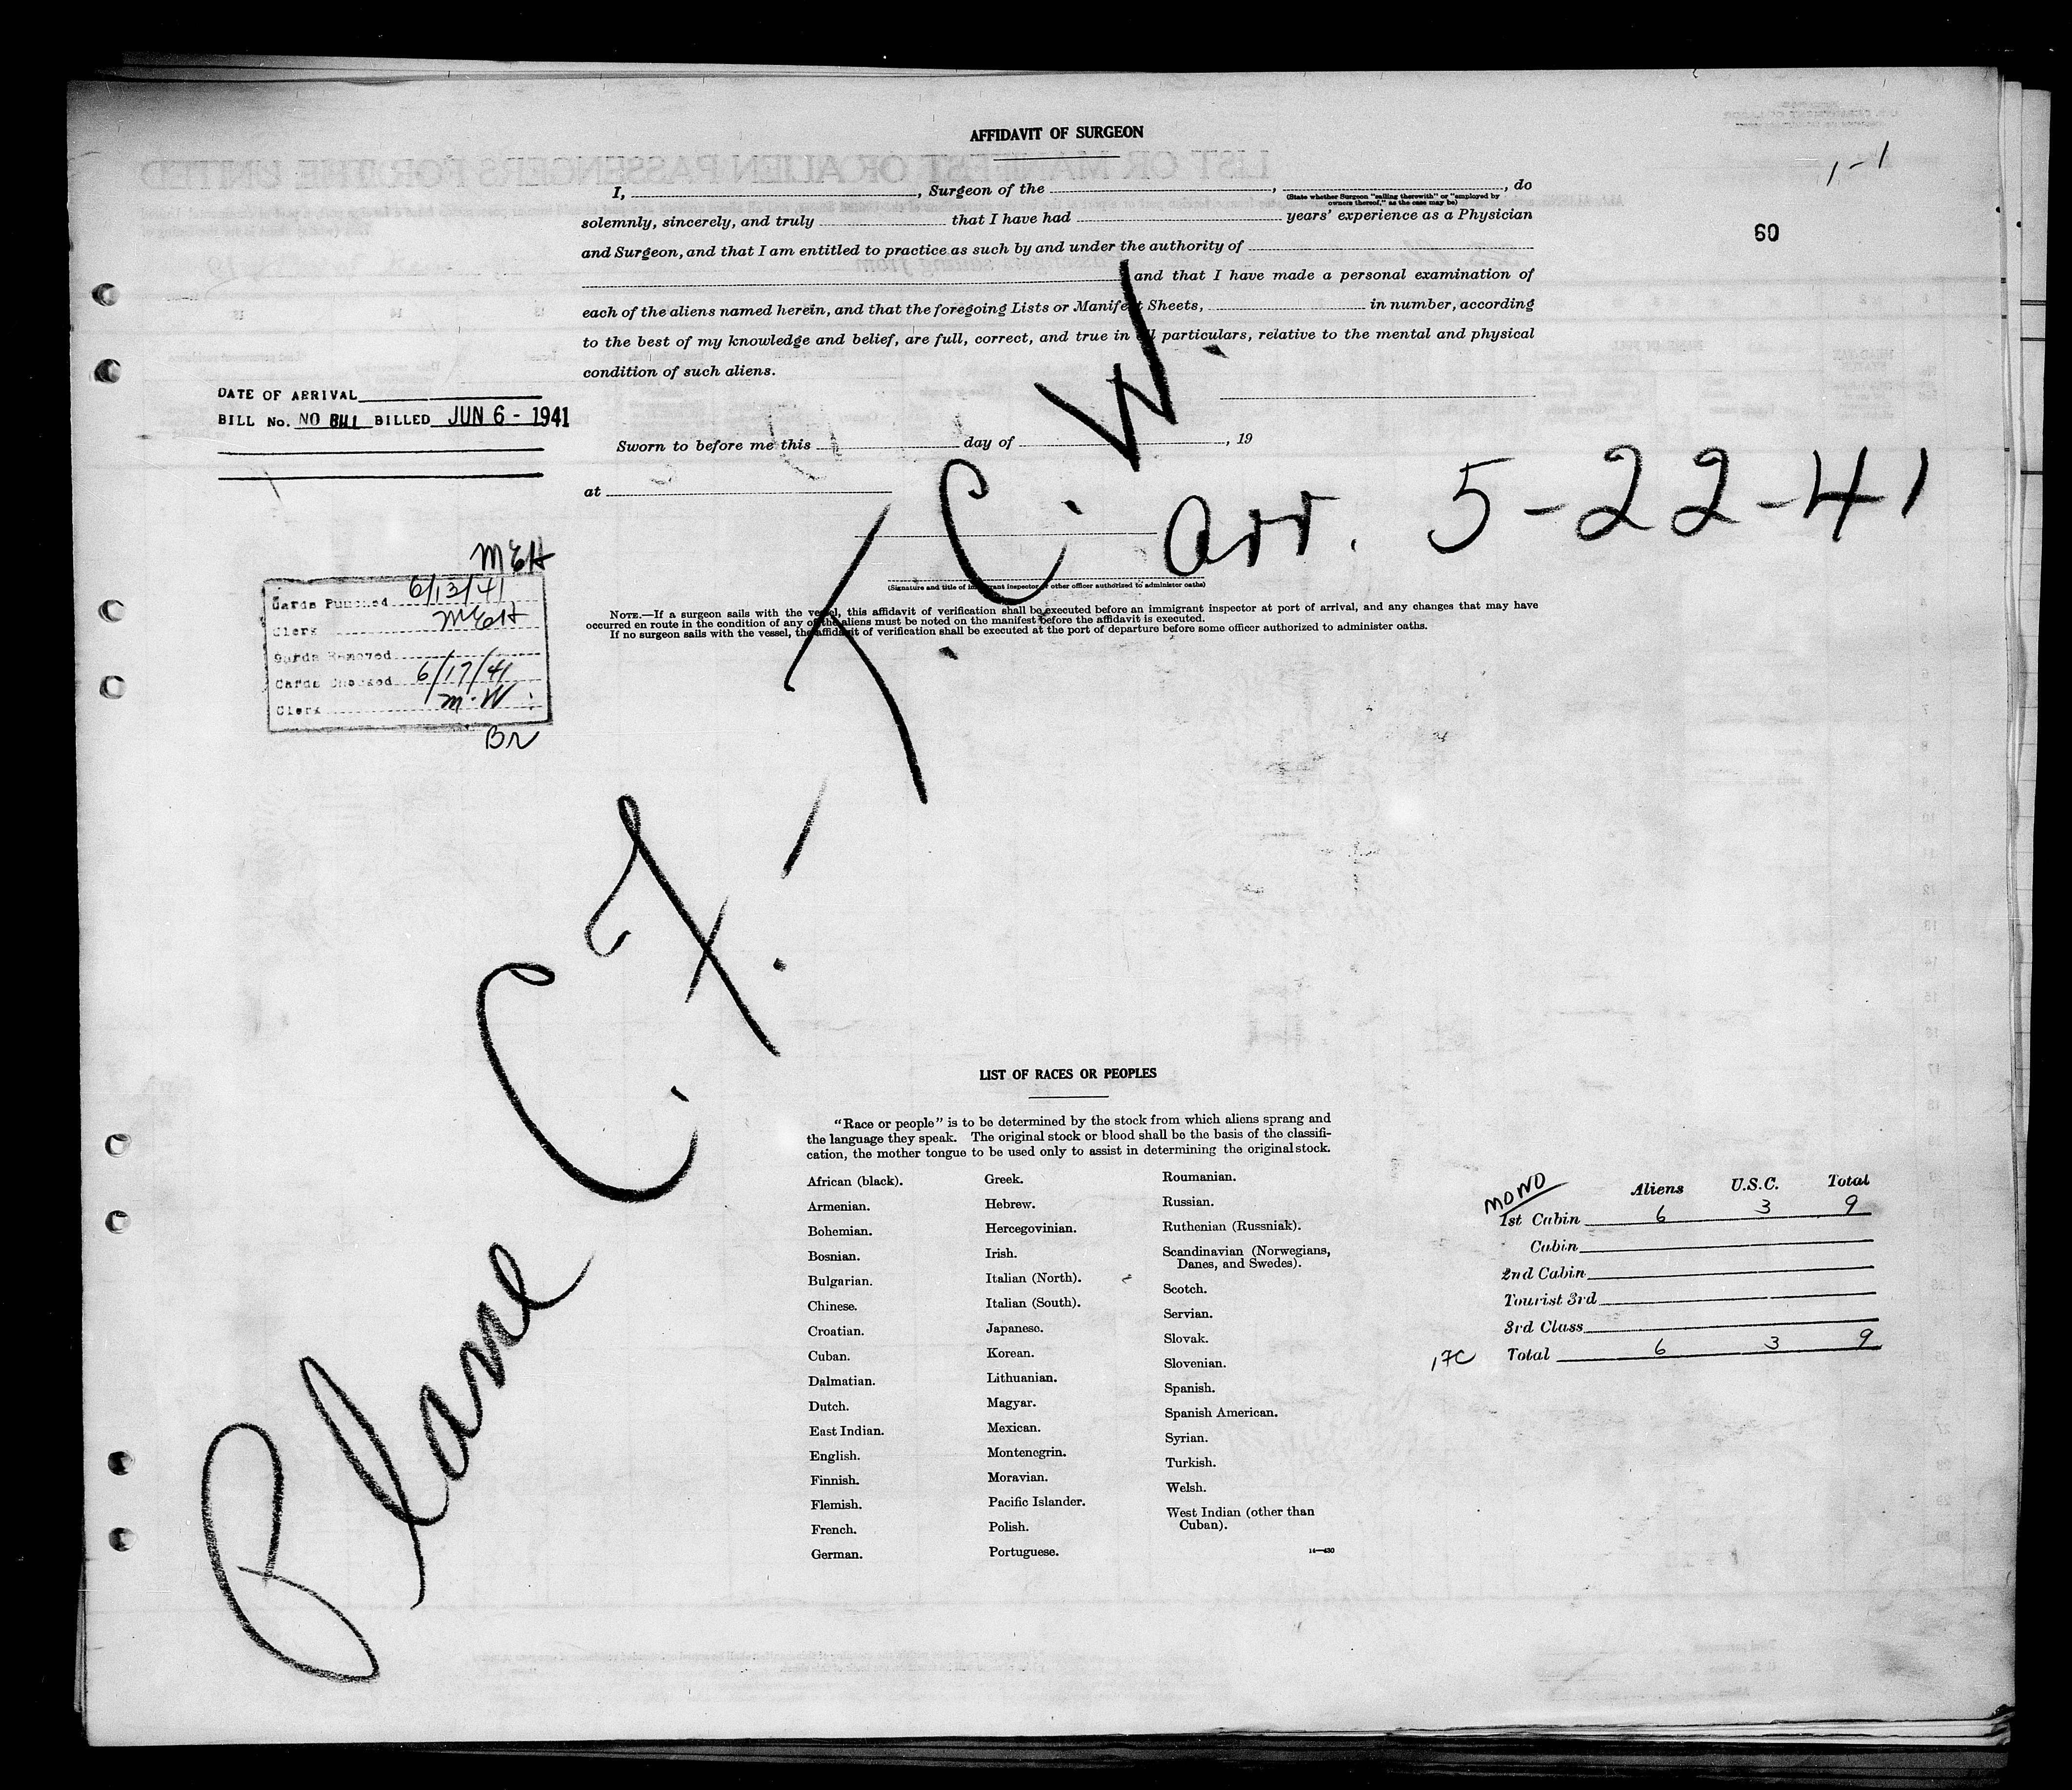 AFFIDAVIT OF SURGEON
1-1
60
I, , Surgeon of the , , do
(State whether Surgeon "sailing therewith" or "employed by
owners thereof," as the case may be)
solemnly, sincerely, and truly that I have had years' experience as a Physician
and Surgeon, and that I am entitled to practice as such by and under the authority of
and that I have made a personal examination of
each of the aliens named herein, and that the foregoing Lists or Manifest Sheets, in number, according
to the best of my knowledge and belief, are full, correct, and true in all particulars, relative to the mental and physical
condition of such aliens.
DATE OF ARRIVAL
BILL No. NO BILL BILLED JUN 6 - 1941
Sworn to before me this day of , 19
at
Arr. 5-22-41
(Signature and title of immigrant inspector or other officer authorized to administer oaths)
NOTE.—If a surgeon sails with the vessel, this affidavit of verification shall be executed before an immigrant inspector at port of arrival, and any changes that may have
occurred en route in the condition of any of the aliens must be noted on the manifest before the affidavit is executed.
If no surgeon sails with the vessel, the affidavit of verification shall be executed at the port of departure before some officer authorized to administer oaths.
MEH
Cards Punched 6/13/41
Clerk MEH
Cards Removed
Cards Checked 6/17/41
Clerk M.W.
Br
Plane C.F.-T.C.W.
LIST OF RACES OR PEOPLES
"Race or people" is to be determined by the stock from which aliens sprang and
the language they speak. The original stock or blood shall be the basis of the classifi-
cation, the mother tongue to be used only to assist in determining the original stock.
African (black).
Armenian.
Bohemian.
Bosnian.
Bulgarian.
Chinese.
Croatian.
Cuban.
Dalmatian.
Dutch.
East Indian.
English.
Finnish.
Flemish.
French.
German.
Greek.
Hebrew.
Hercegovinian.
Irish.
Italian (North).
Italian (South).
Japanese.
Korean.
Lithuanian.
Magyar.
Mexican.
Montenegrin.
Moravian.
Pacific Islander.
Polish.
Portuguese.
Roumanian.
Russian.
Ruthenian (Russniak).
Scandinavian (Norwegians,
Danes, and Swedes).
Scotch.
Servian.
Slovak.
Slovenian.
Spanish.
Spanish American.
Syrian.
Turkish.
Welsh.
West Indian (other than
Cuban).
14—430
MONO
Aliens U.S.C. Total
1st Cabin 6 3 9
Cabin
2nd Cabin
Tourist 3rd
3rd Class
Total 6 3 9